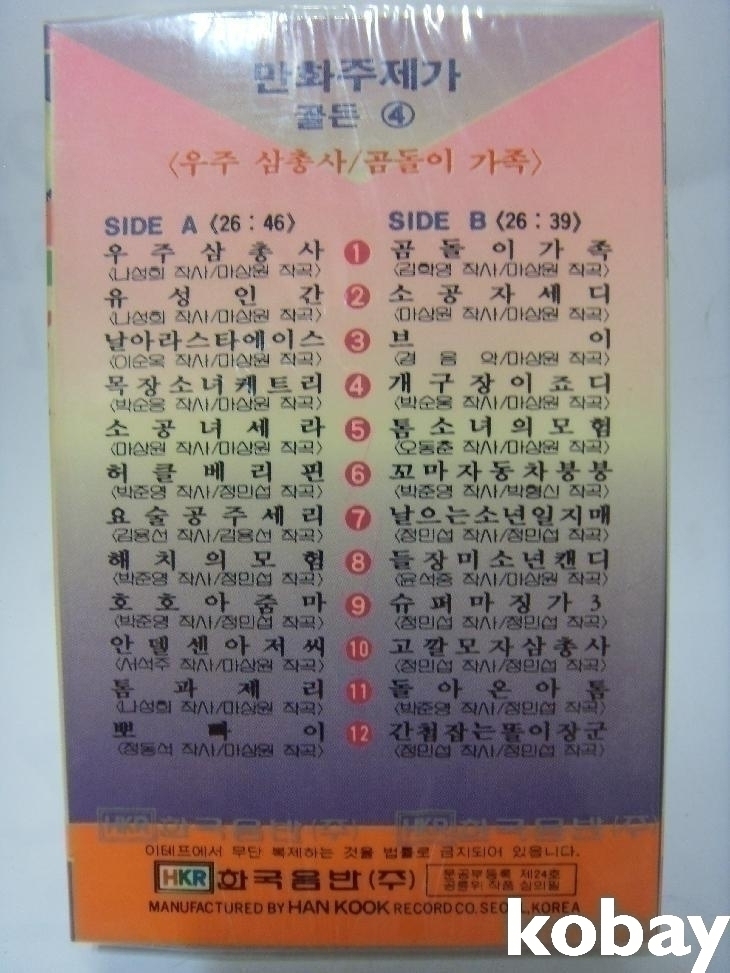 만화주제가
골든 ④
〈우주 삼총사/곰돌이 가족〉
SIDE A 〈26 : 46〉
SIDE B 〈26 : 39〉
우주삼총사 1 곰돌이가족
〈나성희 작사/마상원 작곡〉 〈김학영 작사/마상원 작곡〉
유성인간 2 소공자세디
〈나성희 작사/마상원 작곡〉 〈마상원 작사/마상원 작곡〉
날아라스타에이스 3 브이
〈이순옥 작사/마상원 작곡〉 〈경음악/마상원 작곡〉
목장소녀케트리 4 개구장이죠디
〈박순웅 작사/마상원 작곡〉 〈박순웅 작사/마상원 작곡〉
소공녀세라 5 톰소녀의모험
〈마상원 작사/마상원 작곡〉 〈오동춘 작사/마상원 작곡〉
허클베리핀 6 꼬마자동차붕붕
〈박준영 작사/정민섭 작곡〉 〈박준영 작사/박형신 작곡〉
요술공주세리 7 날으는소년일지매
〈김용선 작사/김용선 작곡〉 〈정민섭 작사/정민섭 작곡〉
해치의모험 8 들장미소년캔디
〈박준영 작사/정민섭 작곡〉 〈윤석중 작사/마상원 작곡〉
호호아줌마 9 슈퍼마징가3
〈박준영 작사/정민섭 작곡〉 〈정민섭 작사/정민섭 작곡〉
안델센아저씨 10 고깔모자삼총사
〈서석주 작사/마상원 작곡〉 〈정민섭 작사/정민섭 작곡〉
톰과제리 11 돌아온아톰
〈나성희 작사/마상원 작곡〉 〈박준영 작사/정민섭 작곡〉
뽀빠이 12 간첩잡는똘이장군
〈정동석 작사/마상원 작곡〉 〈정민섭 작사/정민섭 작곡〉
HKR 한국음반(주) HKR 한국음반(주)
이테프에서 무단 복제하는 것을 법률로 금지되어 있읍니다.
HKR 한국음반(주)
문공부등록 제24호
공륜위 작품 심의필
MANUFACTURED BY HAN KOOK RECORD CO. SEOUL, KOREA
kobay